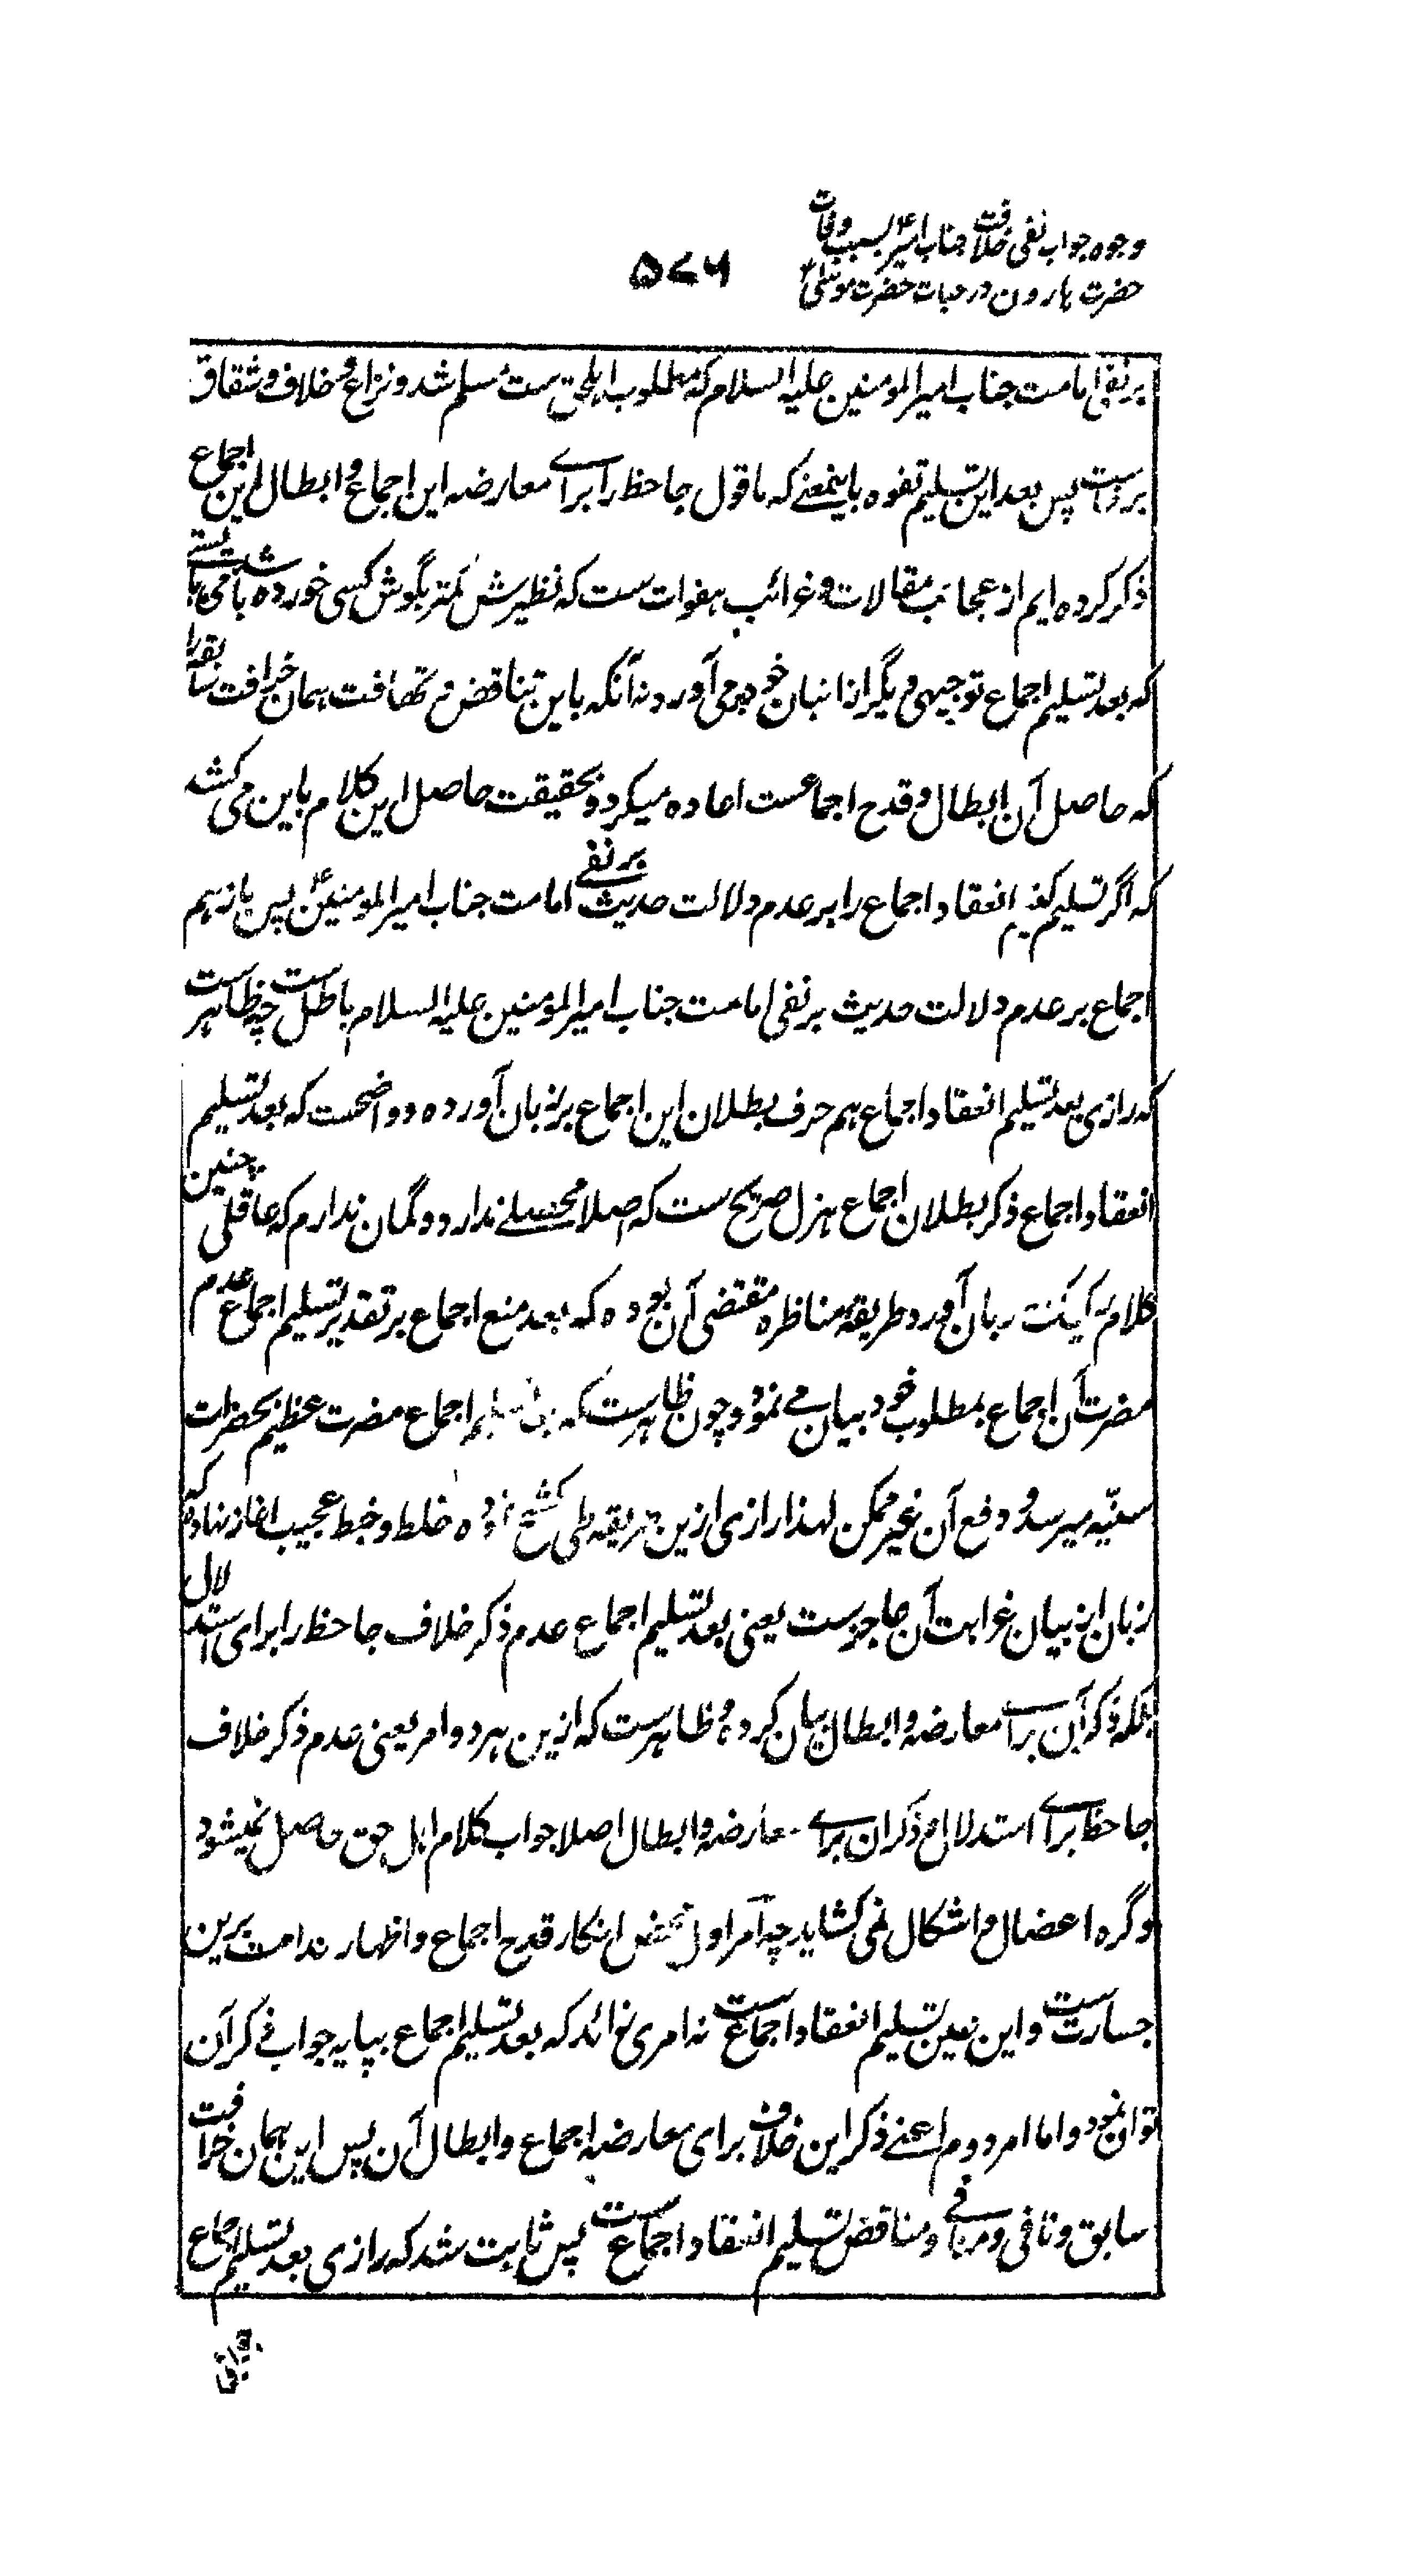 وجوه جواب نفی خلافت جناب امیرؑ بسبب وفات
حضرت هارون در حیات حضرت موسیٰؑ
۵۷۶
بر نفی امامت جناب امیرالمومنین علیه السلام که مطلوب اهلحق ست مسلم شد و نزاع و خلاف و شقاق
برخاست پس بعد این تسلیم تفوه باینمعنے که ما قول جاحظ را براے معارضه این اجماع و ابطال این اجماع
ذکر کرده ایم از عجائب مقالات و غرائب هفوات ست که نظیرش کمتر بگوش کسی خورده باشد می بایستے
که بعد تسلیم اجماع توجیهی دیگر از انبان خود برمی آورد نه آنکه باین تناقض و تهافت همان خرافت سابقه را
که حاصل آن ابطال و قدح اجماعست اعاده میکرد و بحقیقت حاصل این کلام باین می کشد
که اگر تسلیم کنیم انعقاد اجماع را بر عدم دلالت حدیث بر نفے امامت جناب امیرالمومنینؑ پس باز هم
اجماع بر عدم دلالت حدیث بر نفی امامت جناب امیرالمومنین علیه السلام باطل ست چه ظاهرست
که رازی بعد تسلیم انعقاد اجماع هم حرف بطلان این اجماع بر زبان آورده و واضحست که بعد تسلیم
انعقاد اجماع ذکر بطلان اجماع هزل صریح ست که اصلا محصلے ندارد و گمان ندارم که عاقلی چنین
کلام بر زبان آورد و طریقه مناظره مقتضی آن بوده که بعد منع اجماع بر تقدیر تسلیم اجماع عدم
مضرت آن اجماع بمطلوب خود بیان مے نمود و چون ظاهرست که اجماع مضرت عظیم بحضرات
سنیه میرسد و دفع آن غیر ممکن لهذا رازی ازین طریقه طی کشح نموده خلط و خبط عجیب آغاز نهاده که
زبان از بیان غرابت آن عاجزست یعنی بعد تسلیم اجماع عدم ذکر خلاف جاحظ را برای استدلال
بلکه ذکر آن براے معارضه و ابطال بیان کرده و ظاهرست که ازین هر دو امر یعنی عدم ذکر خلاف
جاحظ براے استدلال و ذکر آن براے معارضه و ابطال اصلا جواب کلام اهل حق حاصل نمیشود
و گره اعضال و اشکال نمی کشاید چه امر اول محض انکار قدح اجماع و اظهار ندامت برین
جسارت ست و این عین تسلیم انعقاد اجماع ست نه امری زائد که بعد تسلیم اجماع بپایه جواب ذکر آن
توان نمود و اما امر دوم اعنے ذکر این خلاف برای معارضه اجماع و ابطال آن پس این همان خرافت
سابق و نافی و منافے و مناقض تسلیم انعقاد اجماع ست پس ثابت شد که رازی بعد تسلیم اجماع